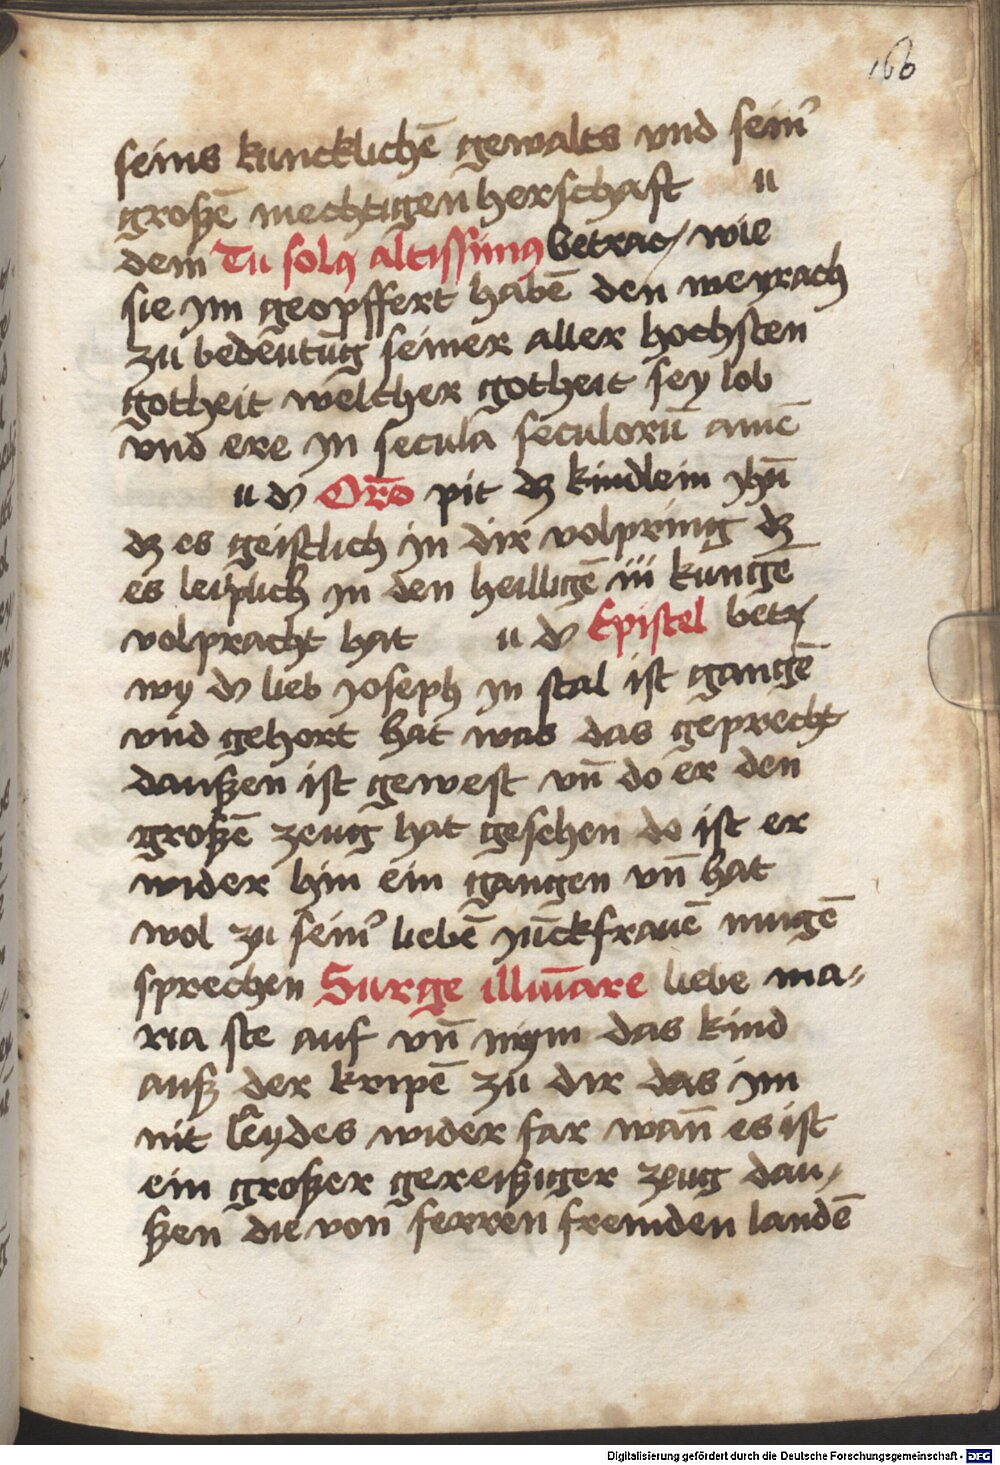 166
seins kuncklichē gewalts vnd sein᾽
großē mechtigen herschaft u
dem Tu solꝰ altissimꝰ betrac/ wie
sie ym geopffert habē den weyrach
zu bedeutūg seiner aller hochsten
gotheit welcher gotheit sey lob
vnd ere yn secula seculorū amē
u dʼ Orō pit dʒ kindlein yhū
dʒ es geistlich yn dir volpring dʒ
es leiplich yn den heilligē iii kungē
volpracht hat u dʼ Epistel betr
wy dʼ lieb Joseph yn stal ist gangē
vnd gehort hat was das geprecht
daußen ist gewest vn̄ do er den
großē zeug hat gesehen do ist er
wider hin ein gangen vn̄ hat
wol zu sein᾽ liebē yūckfrauē mugē
sprechen Surge illūīare liebe ma-
ria ste auf vn̄ nym das kind
auß der kripē zu dir das ym
nit leydes wider far wan̄ es ist
ein großer gereißiger zeug dau-
ßen die von ferren fremden landē
Digitalisierung gefördert durch die Deutsche Forschungsgemeinschaft - DFG